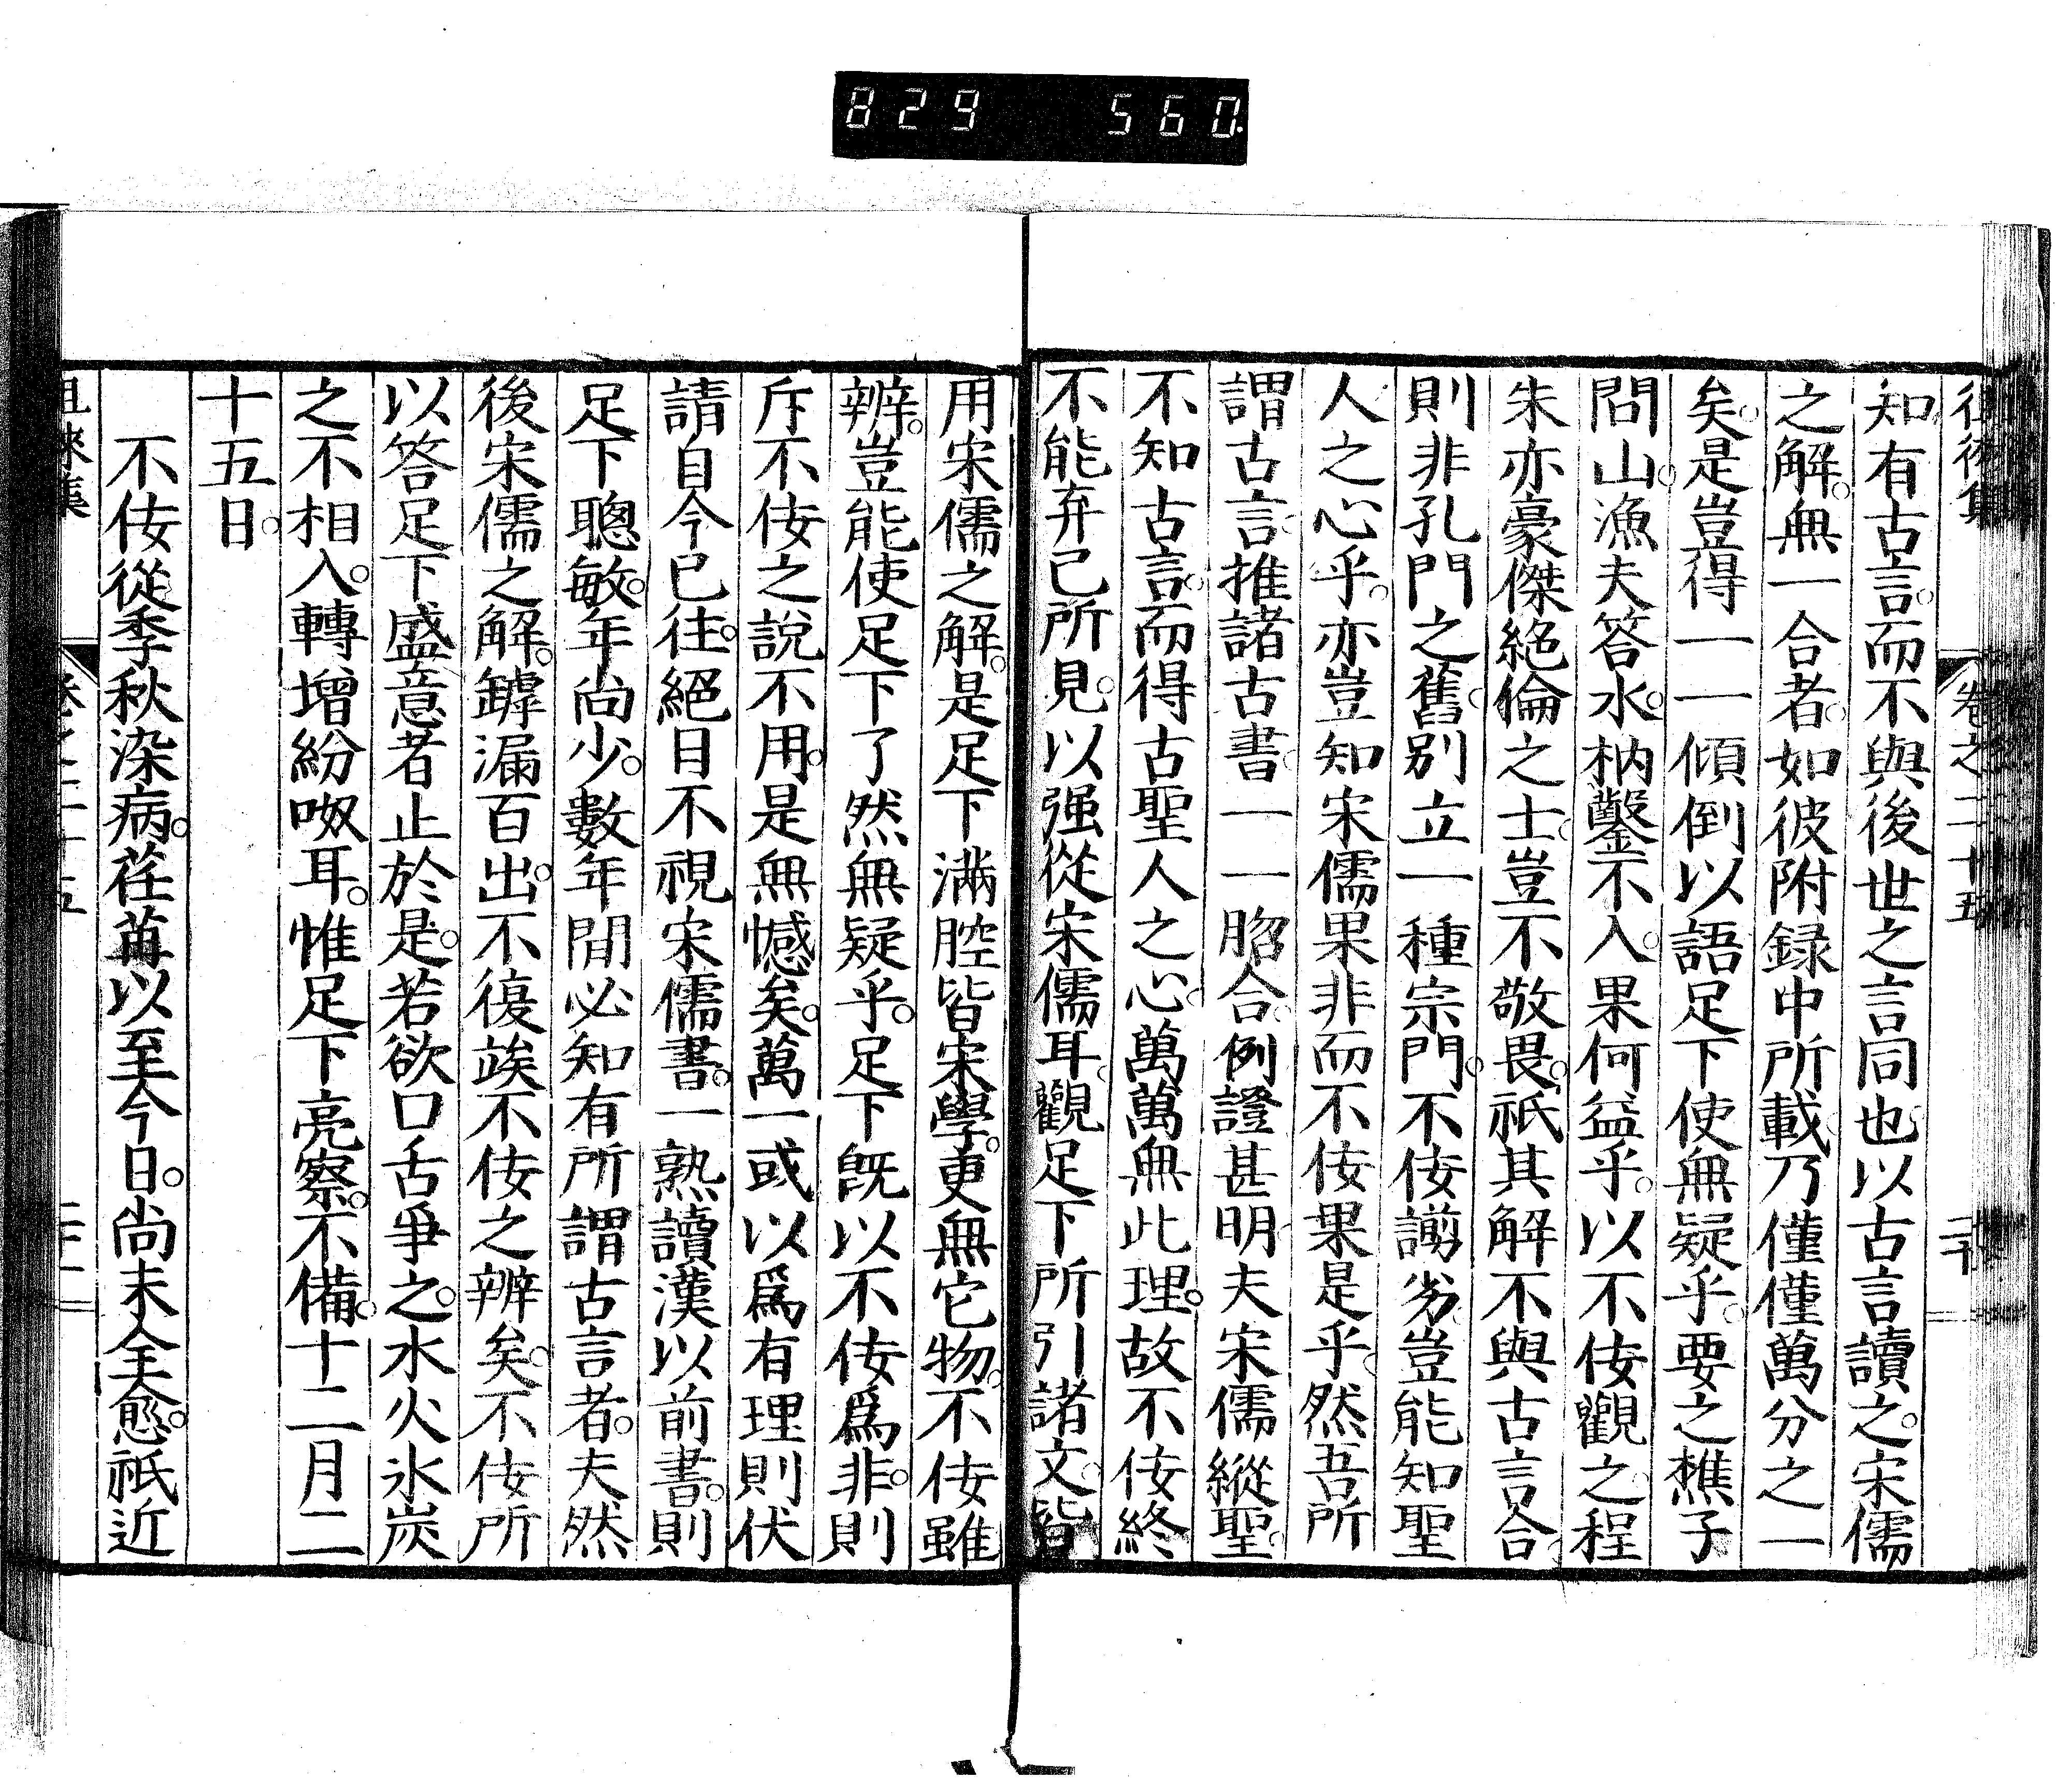 829 560.
徂徠集 卷之二十五 二十
知有古言。而不與後世之言同也。以古言讀之。宋儒
之解。無一合者。如彼附録中所載。乃僅僅萬分之一
矣。是豈得一一傾倒以語足下使無疑乎。要之樵子
問山。漁夫答水。枘鑿不入。果何益乎。以不佞觀之。程
朱亦豪傑絶倫之士。豈不敬畏。祇其解不與古言合。
則非孔門之舊。別立一種宗門。不佞謭劣。豈能知聖
人之心乎。亦豈知宋儒果非而不佞果是乎。然吾所
謂古言。推諸古書。一一脗合。例證甚明。夫宋儒縱聖。
不知古言。而得古聖人之心。萬萬無此理。故不佞終
不能弃己所見。以强從宋儒耳。觀足下所引諸文。皆
用宋儒之解。是足下滿腔皆宋學。更無它物。不佞雖
辨。豈能使足下了然無疑乎。足下旣以不佞爲非。則
斥不佞之說不用。是無憾矣。萬一或以爲有理則伏
請自今已往。絕目不視宋儒書。一熟讀漢以前書。則
足下聰敏。年尚少。數年間必知有所謂古言者。夫然
後宋儒之解。罅漏百出。不復竢不佞之辨矣。不佞所
以答足下盛意者止於是。若欲口舌爭之。水火氷炭
之不相入。轉增紛呶耳。惟足下亮察。不備。十二月二
十五日。
不佞從季秋染病。荏苒以至今日。尚未全愈。祇近
徂徠集 卷之二十五 二十一